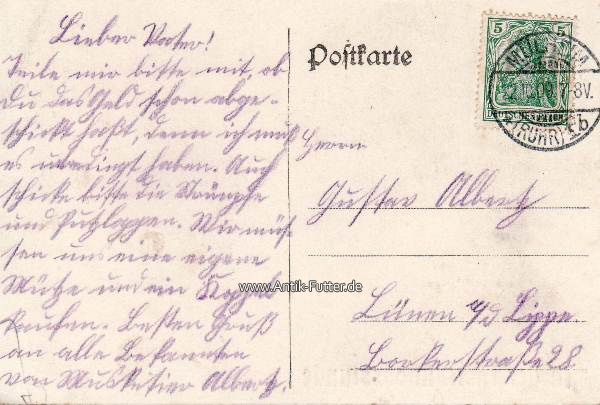 Lieber Vater!
Teile mir bitte mit, ob
Du das Geld schon abge-
schickt hast, denn ich muß
es unbedingt haben. Auch
schicke bitte die Strümpfe
und Putzlappen. Wir müs-
sen uns eine eigene
Mütze und ein Koppel
kaufen. Besten Gruß
an alle Bekannten
von Musketier Albertz.
Postkarte
5 5
DEUTSCHES REICH
MÜLHEIM
09.7-8V.
*(RUHR) 1b
Herrn
Gustav Albertz
Lünen a/d Lippe
Borkerstraße 28
www.Antik-Futter.de